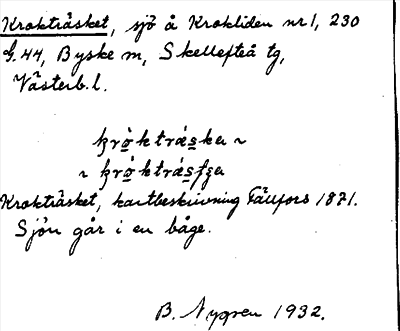 Krokträsket, sjö å Krokliden nr 1, 230
G.44, Byske m, Skellefteå tg,
Västerb. l.
kròktráska ~
~ kròktrásfsa
Krokträsket, kartbeskrivning Fällfors 1871.
Sjön går i en båge.
B. Nygren 1932.